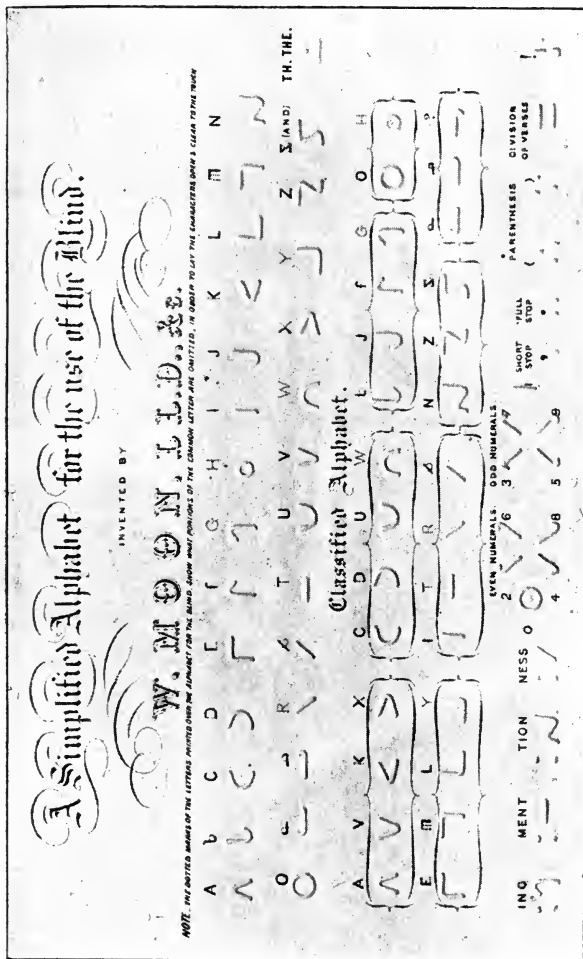 A Simplified Alphabet for the use of the Blind.
INVENTED BY
W. MOON, LL.D., &c.
NOTE. THE DOTTED MARKS OF THE LETTERS PRINTED OVER THE ALPHABET FOR THE BLIND, SHOW WHAT PORTIONS OF THE COMMON LETTER ARE OMITTED, IN ORDER TO LAY THE CHARACTERS OPEN & CLEAR TO THE TOUCH
A b C D E f G H I J K L M N
O p q R T U V W X Y Z Σ (AND) TH. THE.
Classified Alphabet.
A V K X C D U W L J f G O H
E M L Y I T R N Z Σ
EVEN NUMERALS. ODD NUMERALS.
SHORT STOP FULL STOP PARENTHESIS DIVISION OF VERSES
ING MENT TION NESS O 2 6 3 7
4 8 5 9